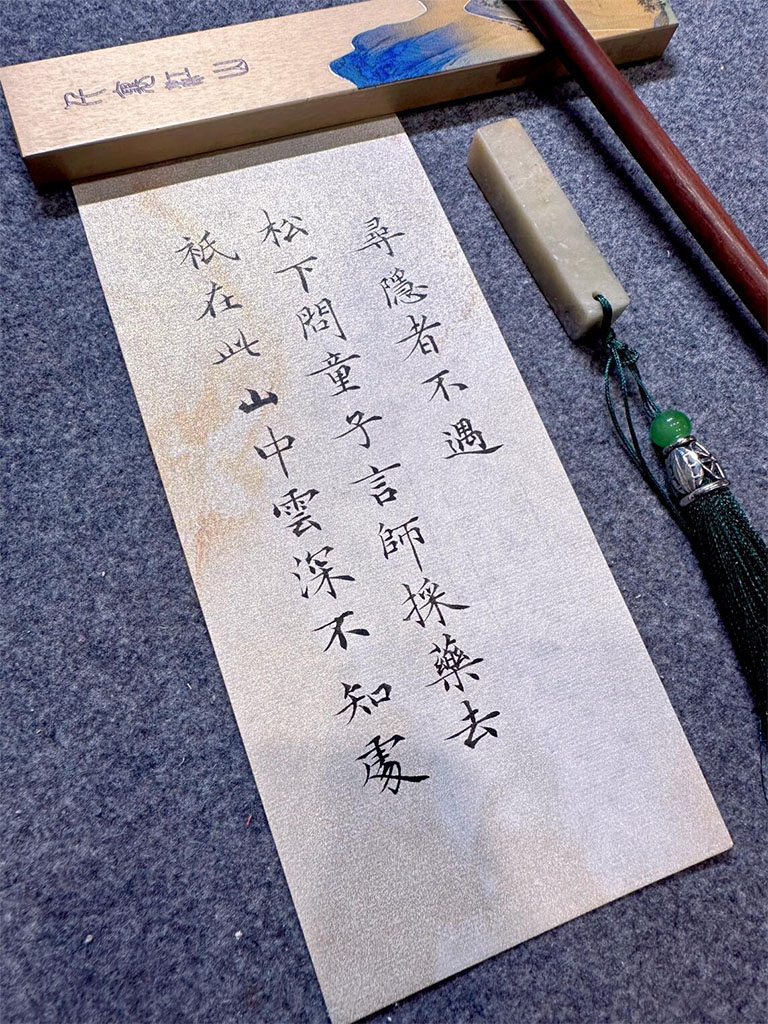 尋隱者不遇
松下問童子言師採藥去
祇在此山中雲深不知處